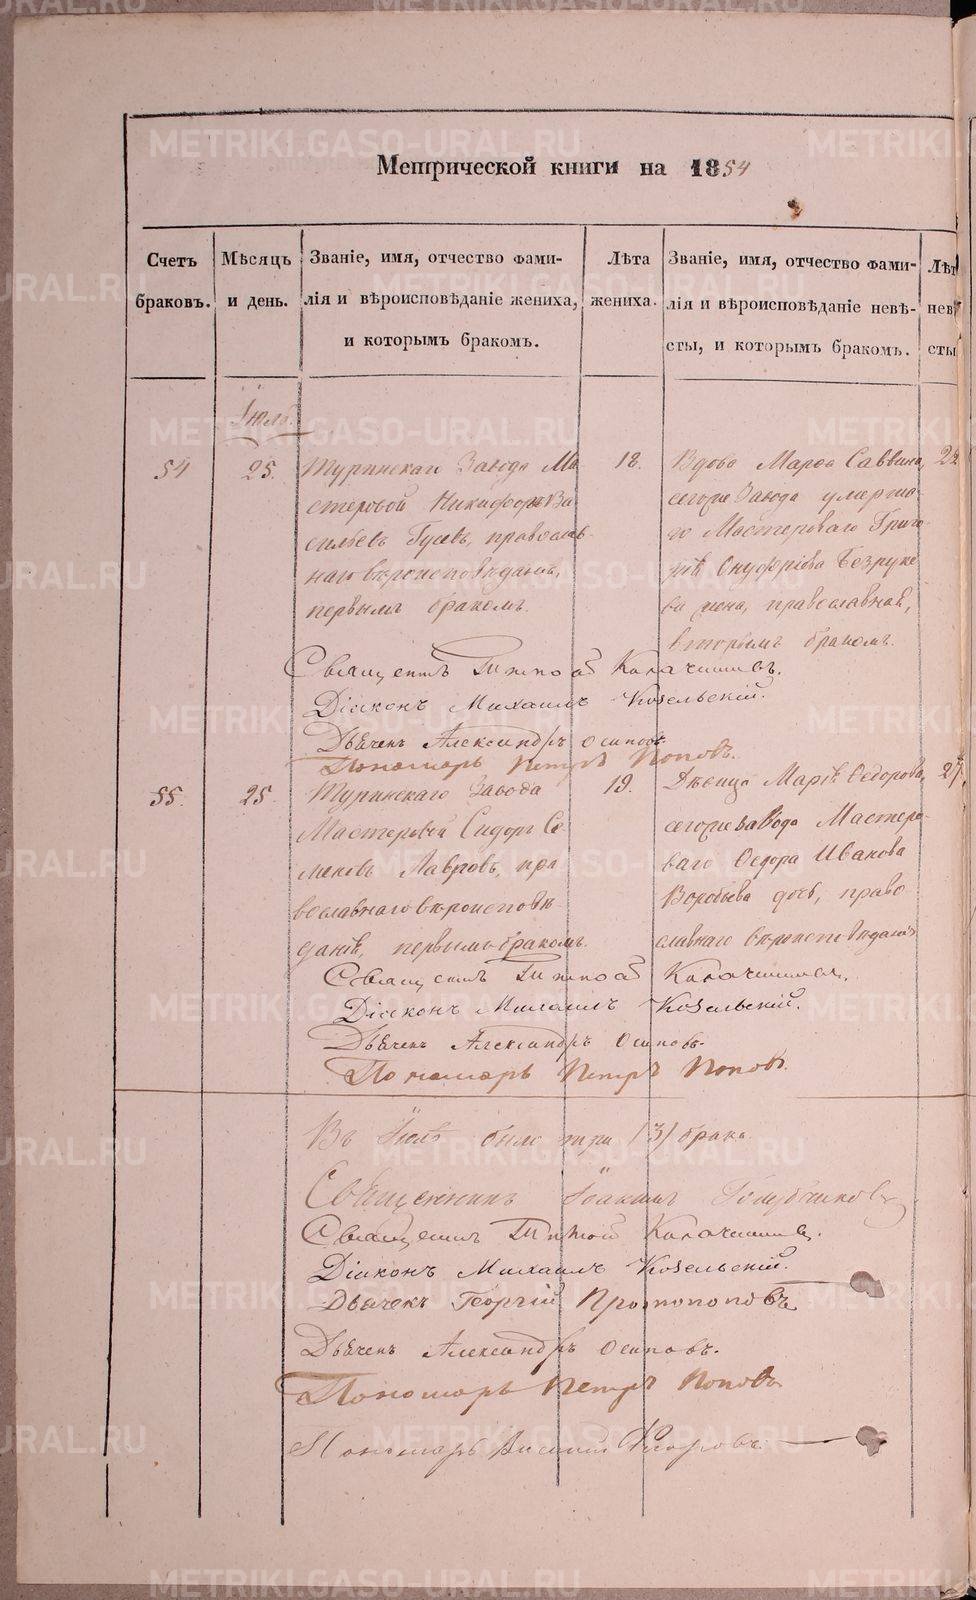 Метрической книги на 1854
Счетъ браковъ.
Мѣсяцъ и день.
Званіе, имя, отчество фами-
лія и вѣроисповѣданіе жениха,
и которымъ бракомъ.
Лѣта жениха.
Званіе, имя, отчество фами-
лія и вѣроисповѣданіе невѣ-
сты, и которымъ бракомъ.
Лѣт
нев
сты
Іюль.
54
25.
Туринскаго Завода Ма
стеровой Никифоръ Ва
сильевъ Гусевъ, православ-
наго вѣроисповѣданія,
первымъ бракомъ.
18.
Вдова Марѳа Саввина,
сегоже Завода умерша-
го Мастероваго Григо
рія Онуфріева Безруко
ва жена, православная,
вторымъ бракомъ.
22
Священникъ Калачниковъ.
Діаконъ Михаилъ Козельскій.
Дьячекъ Александръ Осиповъ.
Пономарь Петръ Поповъ.
55.
25.
Туринскаго Завода
Мастеровой Сидоръ Се
меновъ Лавровъ, пра
вославнаго вѣроисповѣ-
данія, первымъ бракомъ.
19.
Дѣвица Марія Ѳедорова,
сегоже завода Мастеро-
ваго Ѳедора Иванова
Воробьева дочь, право
славнаго вѣроисповѣданія
27
Священникъ
Діаконъ Михаилъ Козельскій.
Дьячекъ Александръ Осиповъ.
Пономарь Петръ Поповъ.
Въ Іюлѣ было три /3/ брака.
Священникъ Іоаннъ
Священникъ
Діаконъ Михаилъ Козельскій.
Дьячекъ Георгій Протопоповъ
Дьячекъ Александръ Осиповъ.
Пономарь Петръ Поповъ
Пономарь
METRIKI.GASO-URAL.RU